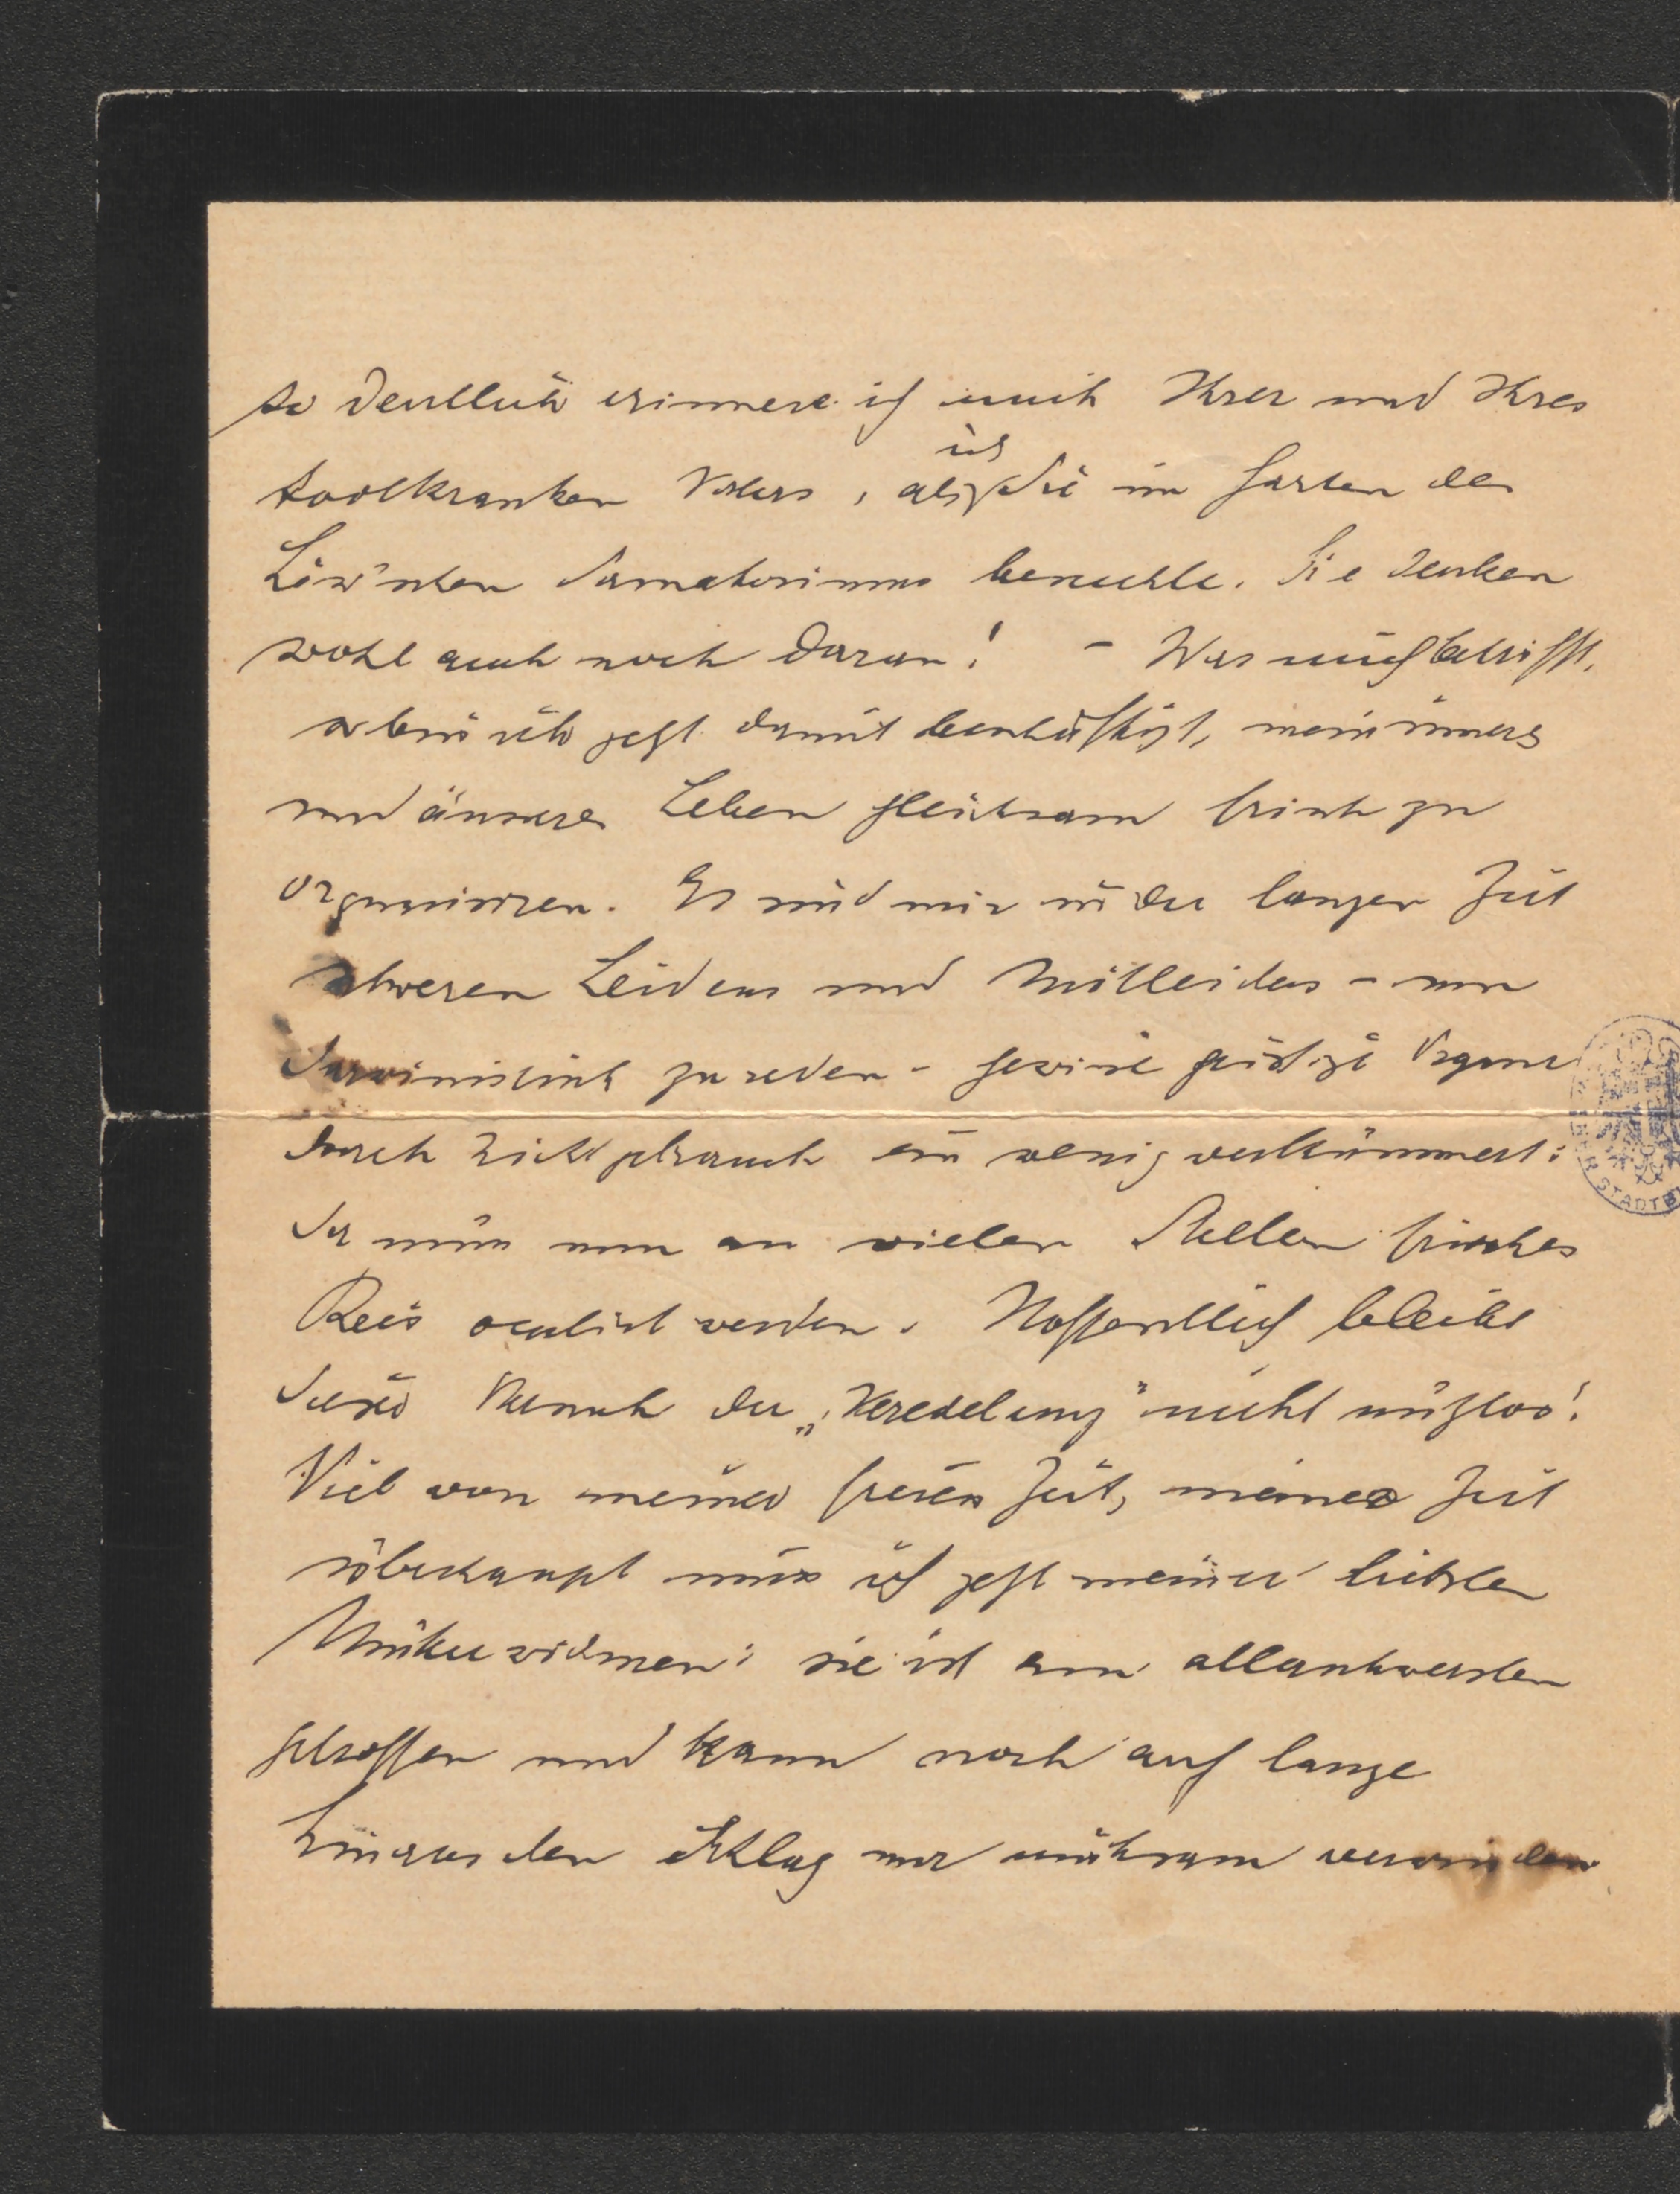 so deutlich erinnere ich mich Ihrer und Ihres
ich
todtkranken Vaters, als Sie im Garten des
Löw'schen Sanatoriums besuchte. Sie denken
wohl auch noch daran! – Was mich betrifft,
so bin ich jetzt damit beschäftigt, mein inneres
und äusseres Leben gleichsam frisch zu
organisiren. Es sind mir in der langen Zeit
schweren Leidens und Mitleidens – um
Darwinistisch zu reden – gewisse geistige Organe
durch Nichtgebrauch ein wenig verkümmert:
da muss nun an vielen Stellen frisches
Reis oculirt werden. Hoffentlich bleibt
dieser Versuch der „Veredelung" nicht nützlos!
Viel von meiner freien Zeit, meiner Zeit
überhaupt muss ich jetzt meiner liebsten
Mutter widmen: sie ist am allerschwersten
getroffen und kann noch auf lange
hinaus den Schlag nur mühsam verwinden.
STADTB